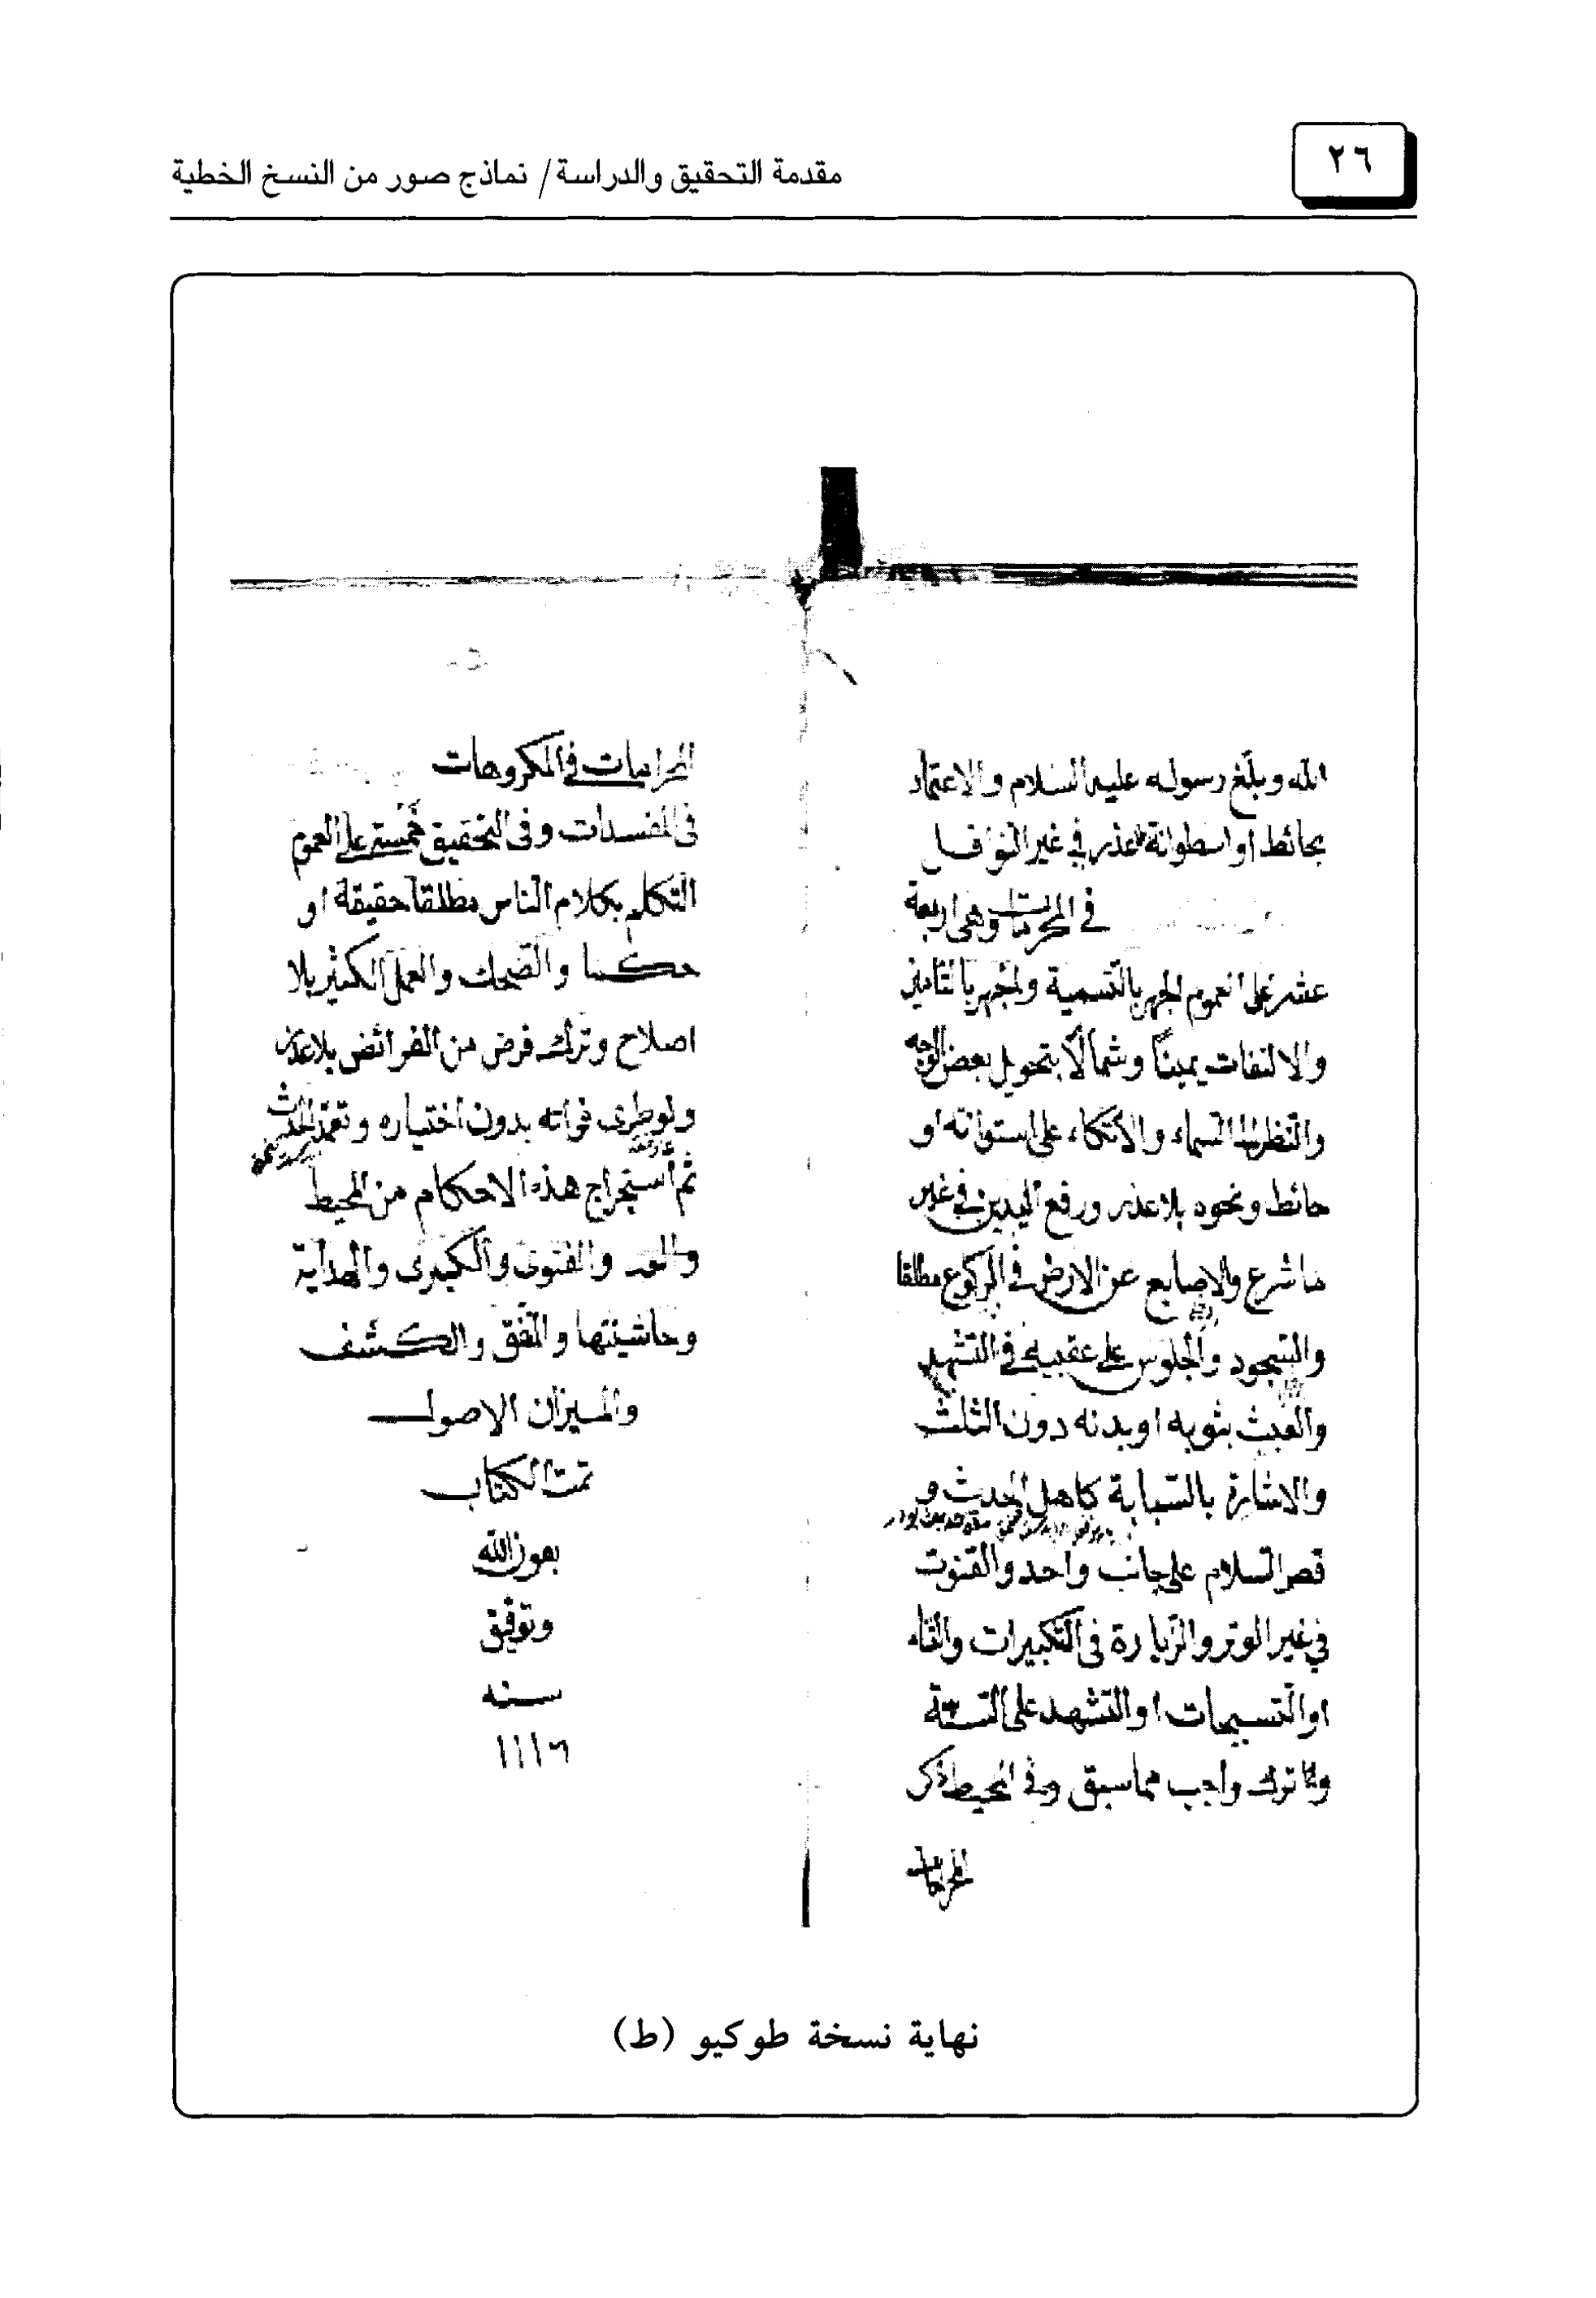 ٢٦
مقدمة التحقيق والدراسة/ نماذج صور من النسخ الخطية
الله وبلّغ رسوله عليه السلام والاعتماد
بحائط او اسطوانة بلا عذر في غير النوافل
في المحرمات وهي اربعة
عشر على العموم الجهر بالتسمية والجهر بالتأمين
والالتفات يمينًا وشمالًا بتحويل بعض الوجه
والنظر الى السماء والاتكاء على استوانه او
حائط ونحوه بلا عذر ورفع اليدين في غير
ما شرع والاصابع عن الارض في الركوع مطلقا
والسجود والجلوس على عقبيه في التشهد
والعبث بثوبه او بدنه دون الثلث
والاشارة بالسبابة كاهل الحديث و
قصر السلام على جانب واحد والقنوت
في غير الوتر والزيادة في التكبيرات والثناء
او التسبيحات او التشهد على السنة
ترك واجب مما سبق وفي المحيط ذكر
المحرمات
المحرامات في المكروهات
في المفسدات وفي التحقيق خمسة على العموم
التكلم بكلام الناس مطلقا حقيقة او
حكما والضحك والعمل الكثير بلا
اصلاح وترك فرض من الفرائض بلا عذر
ولو طرى فواته بدون اختياره وتعمد الحدث
ثم استخراج هذه الاحكام من المحيط
والفتوى والكبيرى والهداية
وحاشيتها والمفق والكشف
والميزان الاصول
تمت الكتاب
بعون الله
وتوفيق
سنه
١١١٦
نهاية نسخة طوكيو (ط)